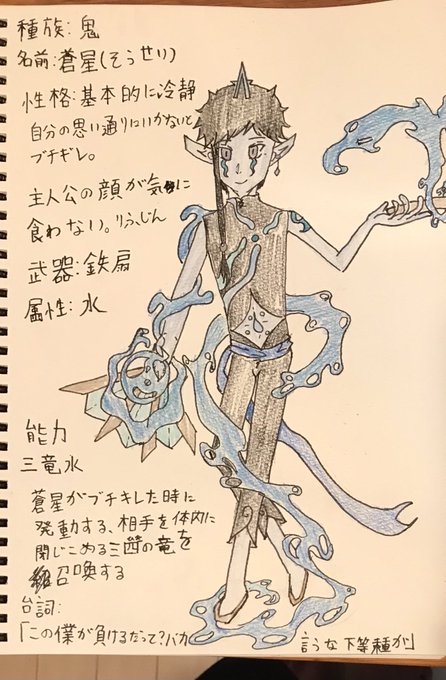 種族:鬼
名前:蒼星(そうせい)
性格:基本的に冷静
自分の思い通りにいかないと
ブチギレ。
主人公の顔が気に
食わない。りふじん
武器:鉄扇
属性:水
能力
三竜水
蒼星がブチキレした時に
発動する、相手を体内に
閉じこめる三匹の竜を
召喚する
台詞:
「この僕が負けるだって?バカ言うな下等種が」